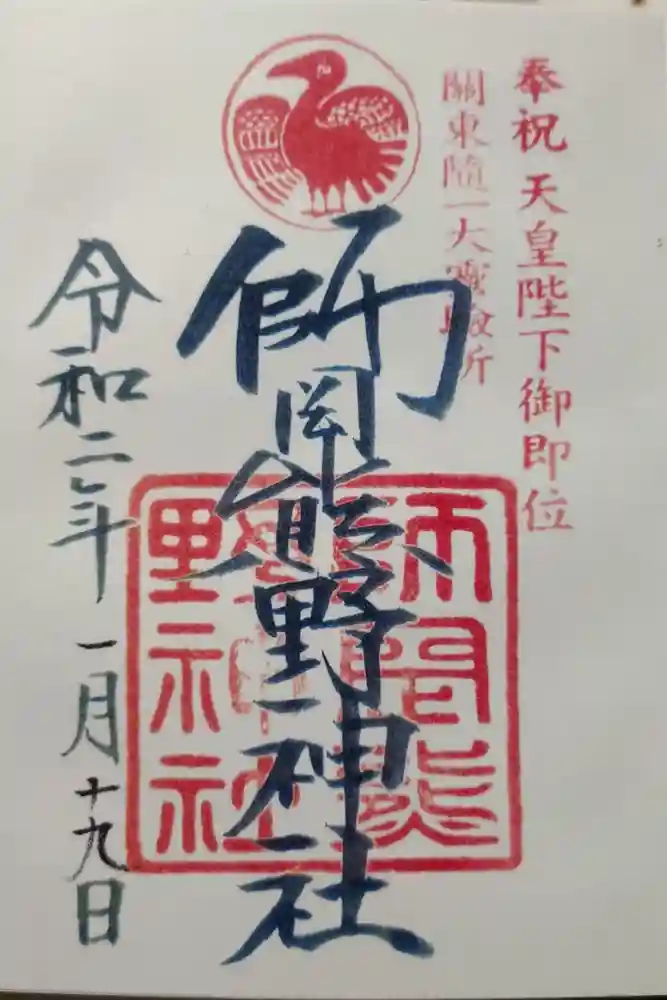 奉祝 天皇陛下御即位
關東隨一大霊験所
師岡熊野神社
令和二年 一月十九日